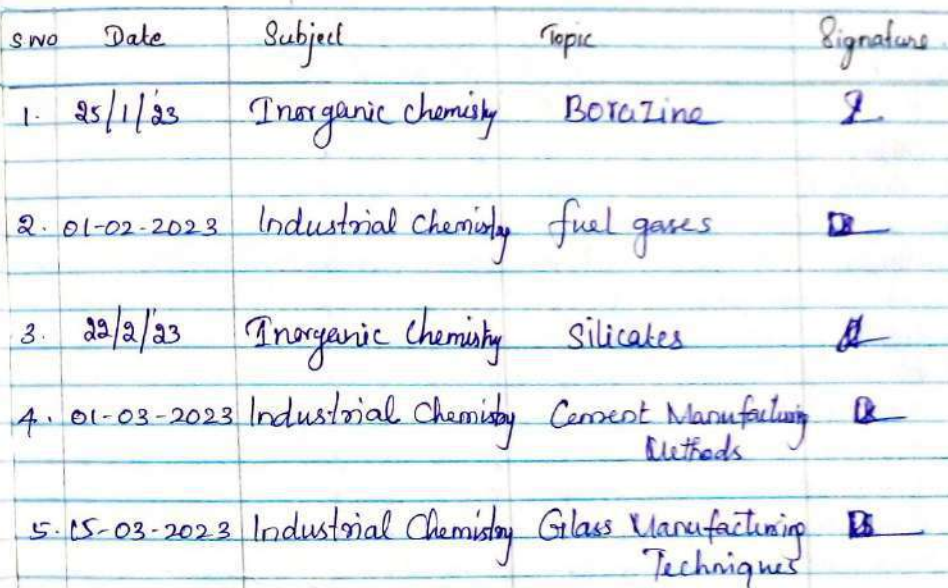 S.NO Date Subject Topic Signature
1. 25/1/23 Inorganic chemisty Borazine
2. 01-02-2023 Industrial Chemistry fuel gases
3. 22/2/23 Inorganic Chemisty Silicates
4. 01-03-2023 Industrial Chemistry Cement Manufacturing
Methods
5. 15-03-2023 Industrial Chemistry Glass Manufacturing
Techniques